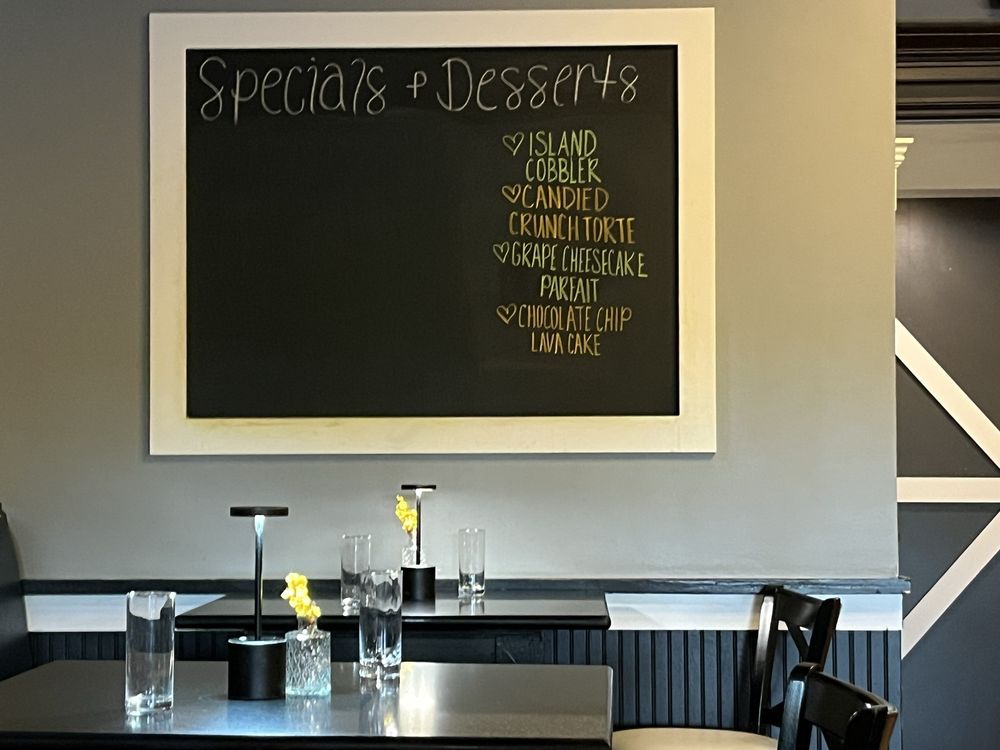 Specials + Desserts
♡ ISLAND
COBBLER
♡ CANDIED
CRUNCH TORTE
♡ GRAPE CHEESECAKE
PARFAIT
♡ CHOCOLATE CHIP
LAVA CAKE